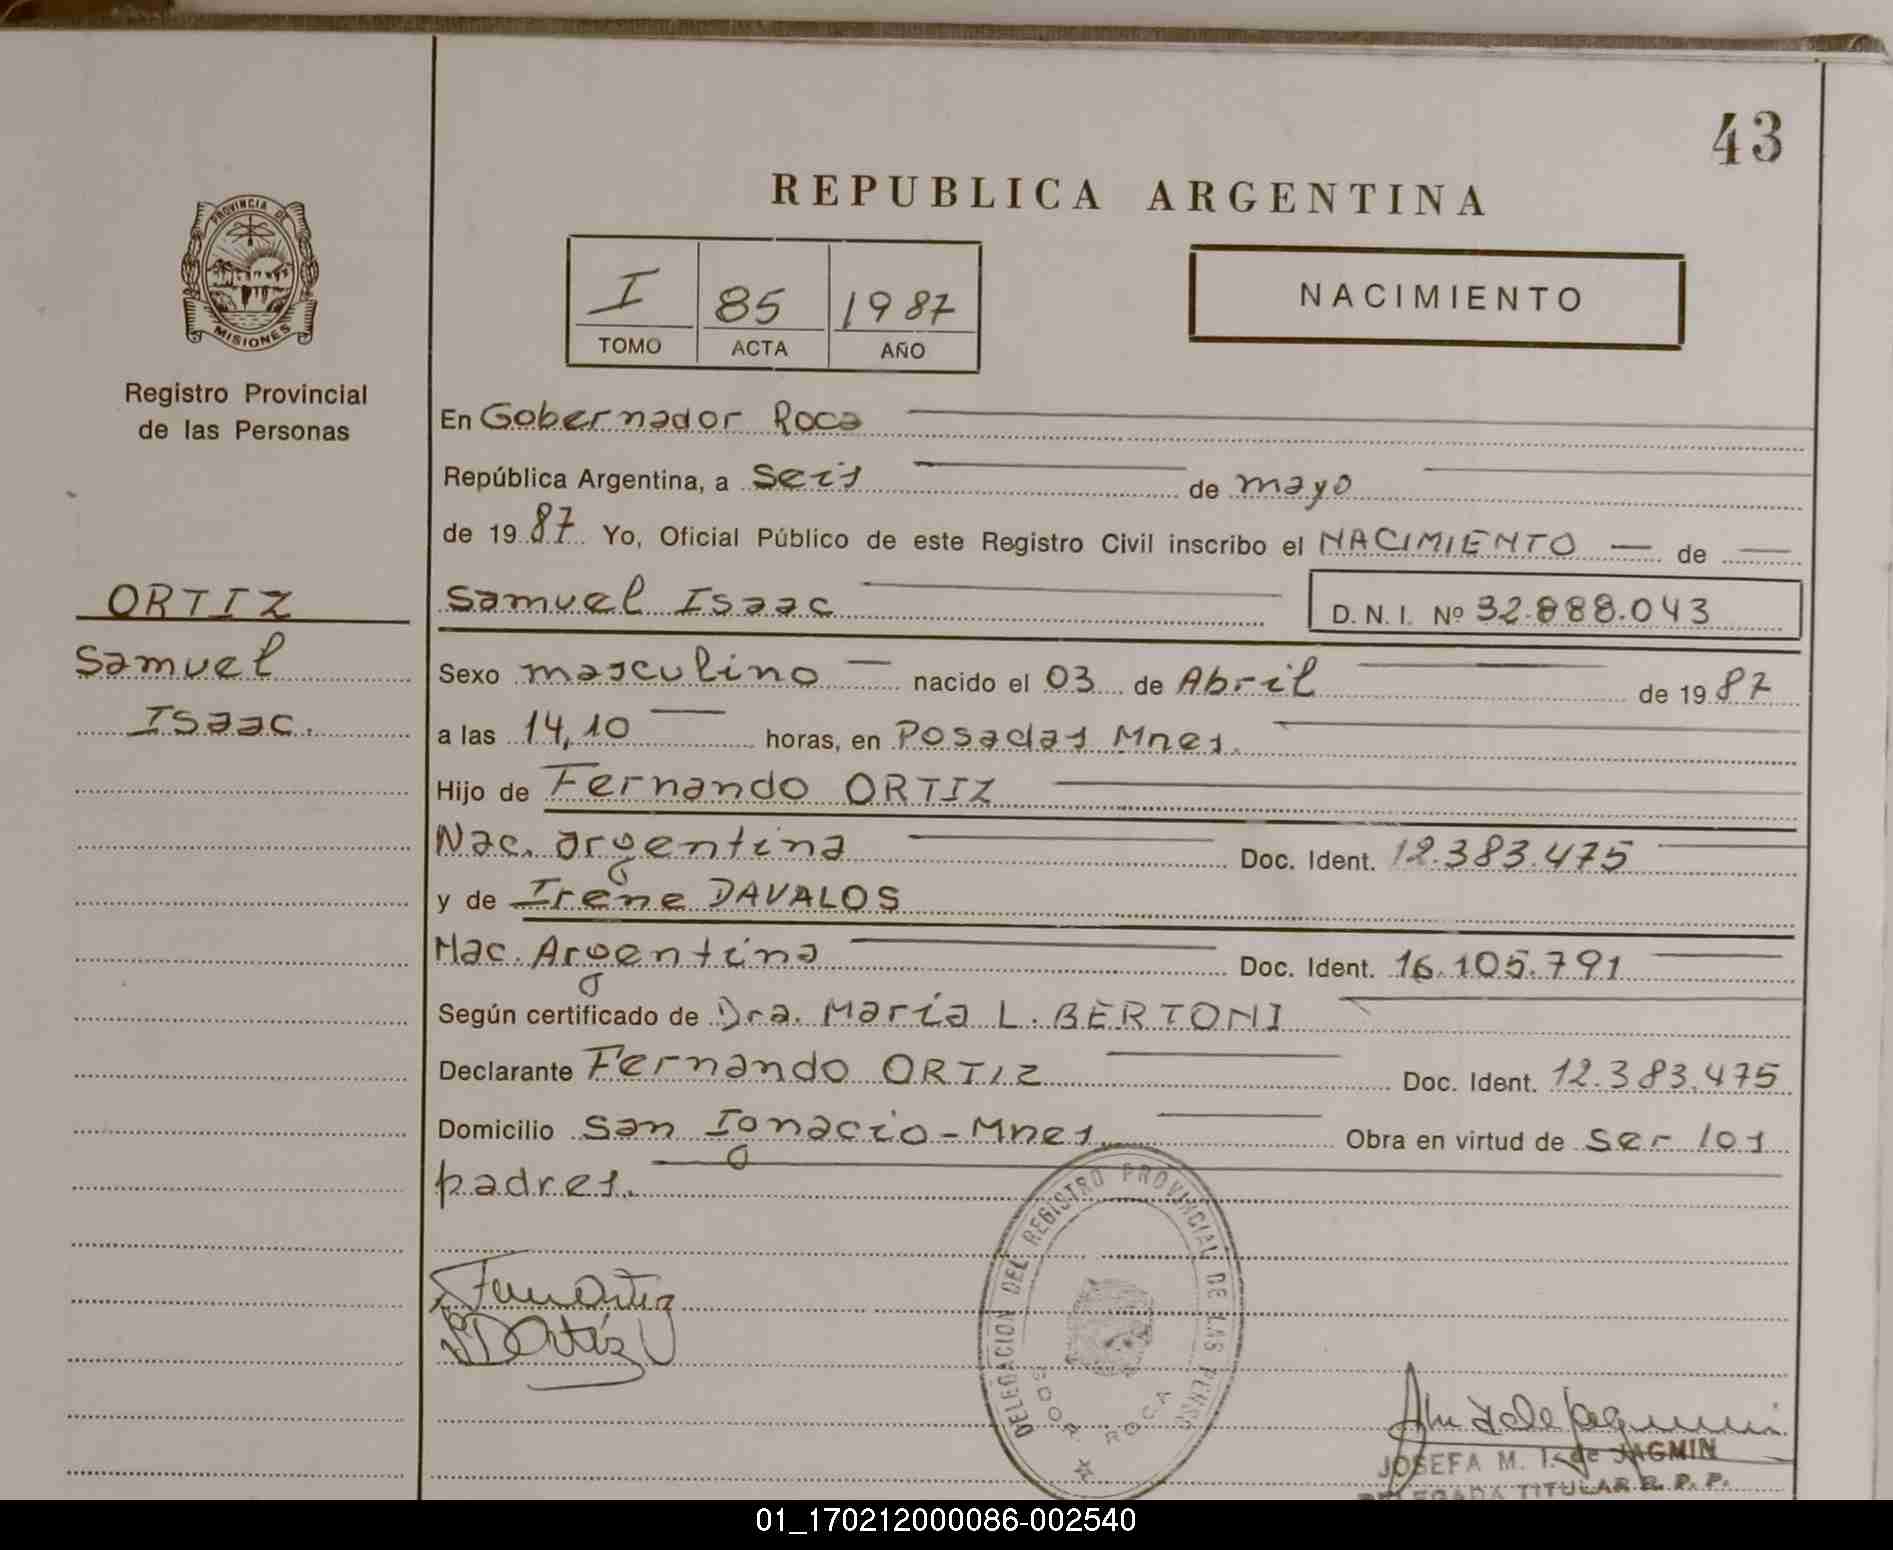 43
REPUBLICA ARGENTINA
PROVINCIA DE
MISIONES
Registro Provincial
de las Personas
I 85 1987
TOMO ACTA AÑO
NACIMIENTO
ORTIZ
Samuel
Isaac.
En Gobernador Roca
República Argentina, a seis de mayo
de 1987 Yo, Oficial Público de este Registro Civil inscribo el NACIMIENTO — de —
Samuel Isaac D. N. I. Nº 32.888.043
Sexo masculino — nacido el 03 de Abril de 1987
a las 14,10 horas, en Posadas Mnes.
Hijo de Fernando ORTIZ
Nac. argentina Doc. Ident. 12.383.475
y de Irene DAVALOS
Nac. Argentina Doc. Ident. 16.105.791
Según certificado de Dra. María L. BERTONI
Declarante Fernando ORTIZ Doc. Ident. 12.383.475
Domicilio San Ignacio - Mnes. Obra en virtud de ser los
padres.
DELEGACION DEL REGISTRO PROVINCIAL DE LAS PERSO
GDOR ROCA
Ortiz
Ortiz
JOSEFA M. I. de JAGMIN
DELEGADA TITULAR R. P. P.
01_170212000086-002540